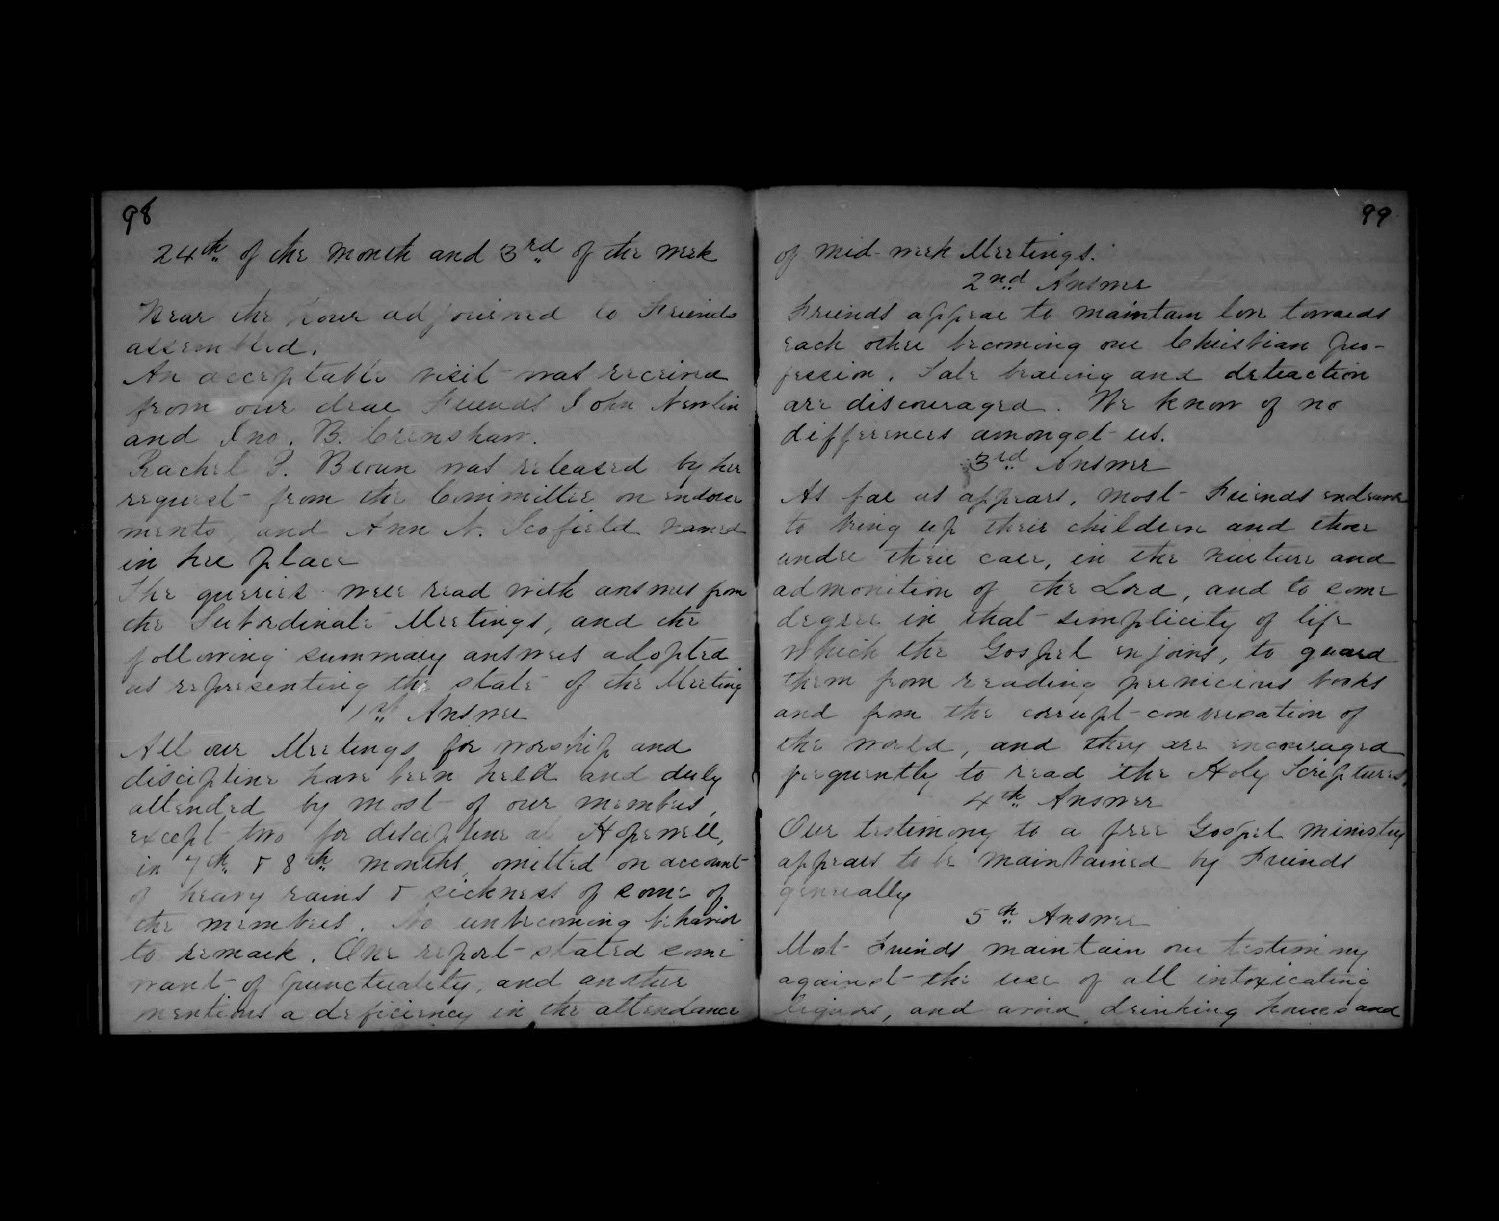 98
24th of the month and 3rd of the week
Near the hour adjourned to Friends
assembled.
An acceptable visit was received
from our dear Friends John Newlin
and Jno. B. Crenshaw.
Rachel P. Brown was released by her
request from the Committee on endow
ments, and Ann N. Scofield named
in her place
The queries were read with answers from
the Subordinate Meetings, and the
following summary answers adopted
as representing the state of the Meeting
1st Answer
All our Meetings for worship and
discipline have been held and duly
attended by most of our members,
except two for discipline at Hopewell,
in 7th & 8th months, omitted on account
of heavy rains & sickness of some of
the members. No unbecoming behavior
to remark. One report stated some
want of punctuality, and another
mentions a deficiency in the attendance
99
of mid-week Meetings.
2nd Answer
Friends appear to maintain love towards
each other becoming our Christian pro-
fession. Tale bearing and detraction
are discouraged. We know of no
differences amongst us.
3rd Answer
As far as appears, most Friends endeavor
to bring up their children and those
under their care, in the nurture and
admonition of the Lord, and to some
degree in that simplicity of life
which the Gospel enjoins, to guard
them from reading pernicious books
and from the corrupt conversation of
the world, and they are encouraged
frequently to read the Holy Scriptures,
4th Answer
Our testimony to a free Gospel ministry
appears to be maintained by Friends
generally
5th Answer
Most Friends maintain our testimony
against the use of all intoxicating
liquors, and avoid drinking houses and